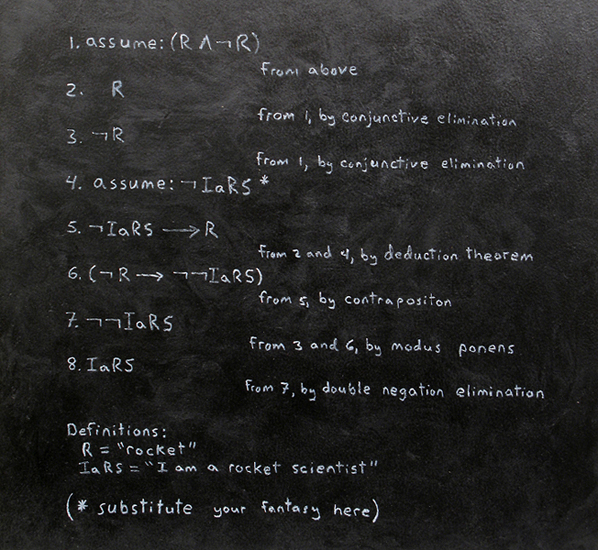 1. assume: (R ∧ ¬R)
from above
2. R
from 1, by conjunctive elimination
3. ¬R
from 1, by conjunctive elimination
4. assume: ¬IaRS *
5. ¬IaRS ⟶ R
from 2 and 4, by deduction theorem
6. (¬R ⟶ ¬¬IaRS)
from 5, by contrapositon
7. ¬¬IaRS
from 3 and 6, by modus ponens
8. IaRS
from 7, by double negation elimination
Definitions:
R = "rocket"
IaRS = "I am a rocket scientist"
(* substitute your fantasy here)